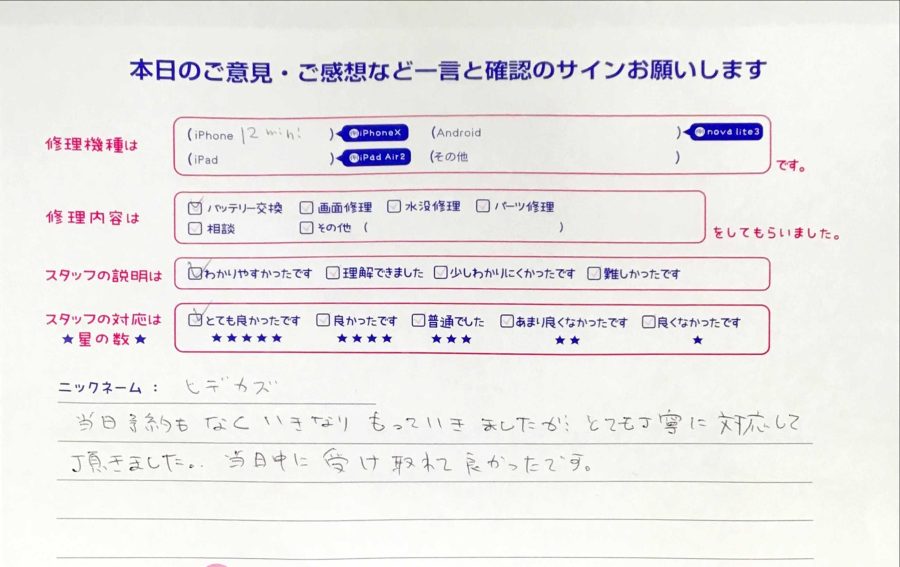 本日のご意見・ご感想など一言と確認のサインお願いします
修理機種は (iPhone 12 mini ) 例iPhoneX (Android ) 例nova lite3
(iPad ) 例iPad Air2 (その他 ) です。
修理内容は バッテリー交換 画面修理 水没修理 パーツ修理
相談 その他 ( ) をしてもらいました。
スタッフの説明は わかりやすかったです 理解できました 少しわかりにくかったです 難しかったです
スタッフの対応は とても良かったです 良かったです 普通でした あまり良くなかったです 良くなかったです
★星の数★ ★★★★★ ★★★★ ★★★ ★★ ★
ニックネーム： ヒデカズ
当日予約もなくいきなりもっていきましたが、とても丁寧に対応して
頂きました。当日中に受け取れて良かったです。